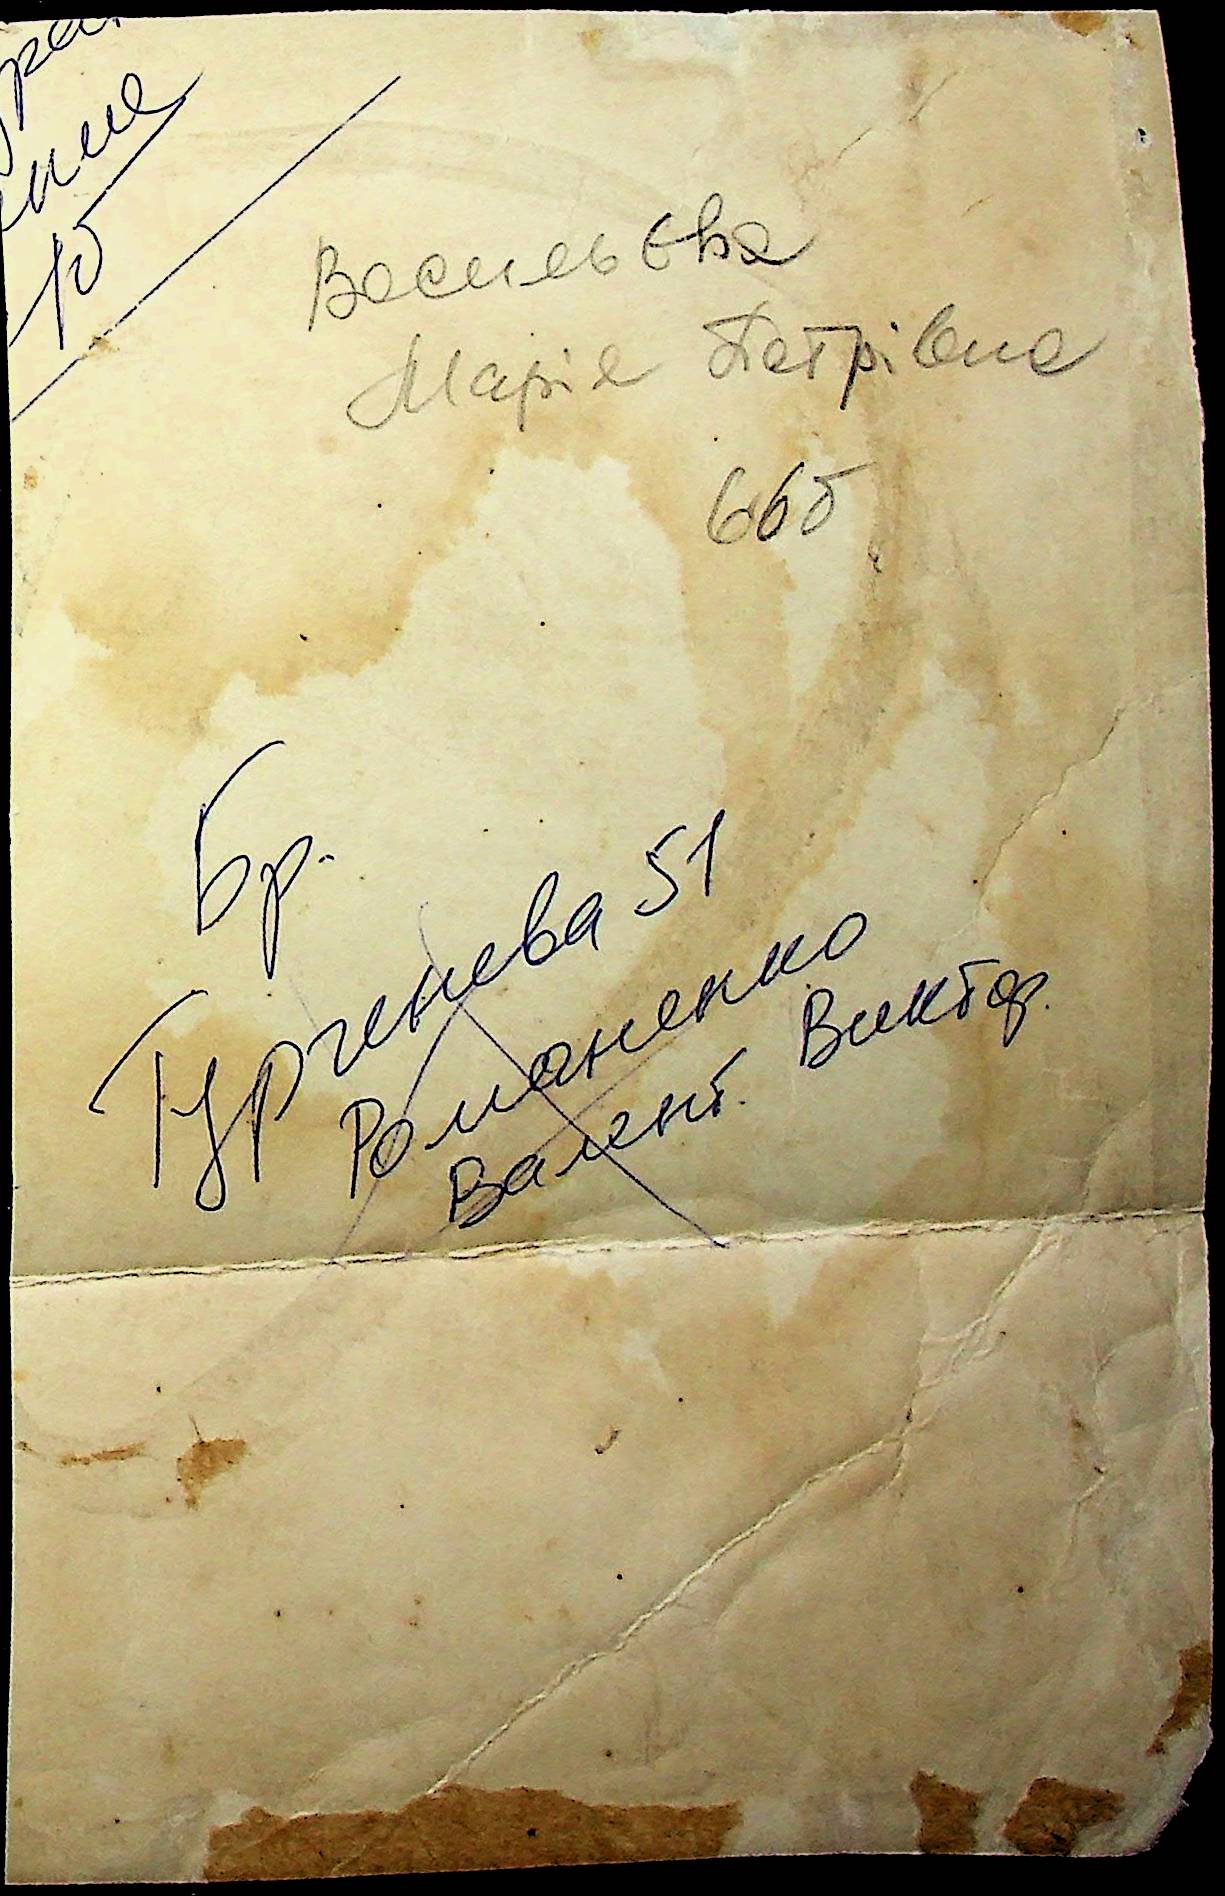 10
Васильєва
Марія Петрівна
66б
Бр.
Тургенева 51
Романенко
Валент. Виктор.